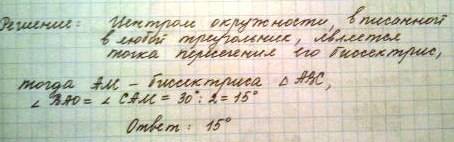 Решение: Центром окружности, вписанной
в любой треугольник, является
точка пересечения его биссектрис,
тогда АМ - биссектриса △ АВС,
∠ ВАО = ∠ САМ = 30° : 2 = 15°
Ответ: 15°